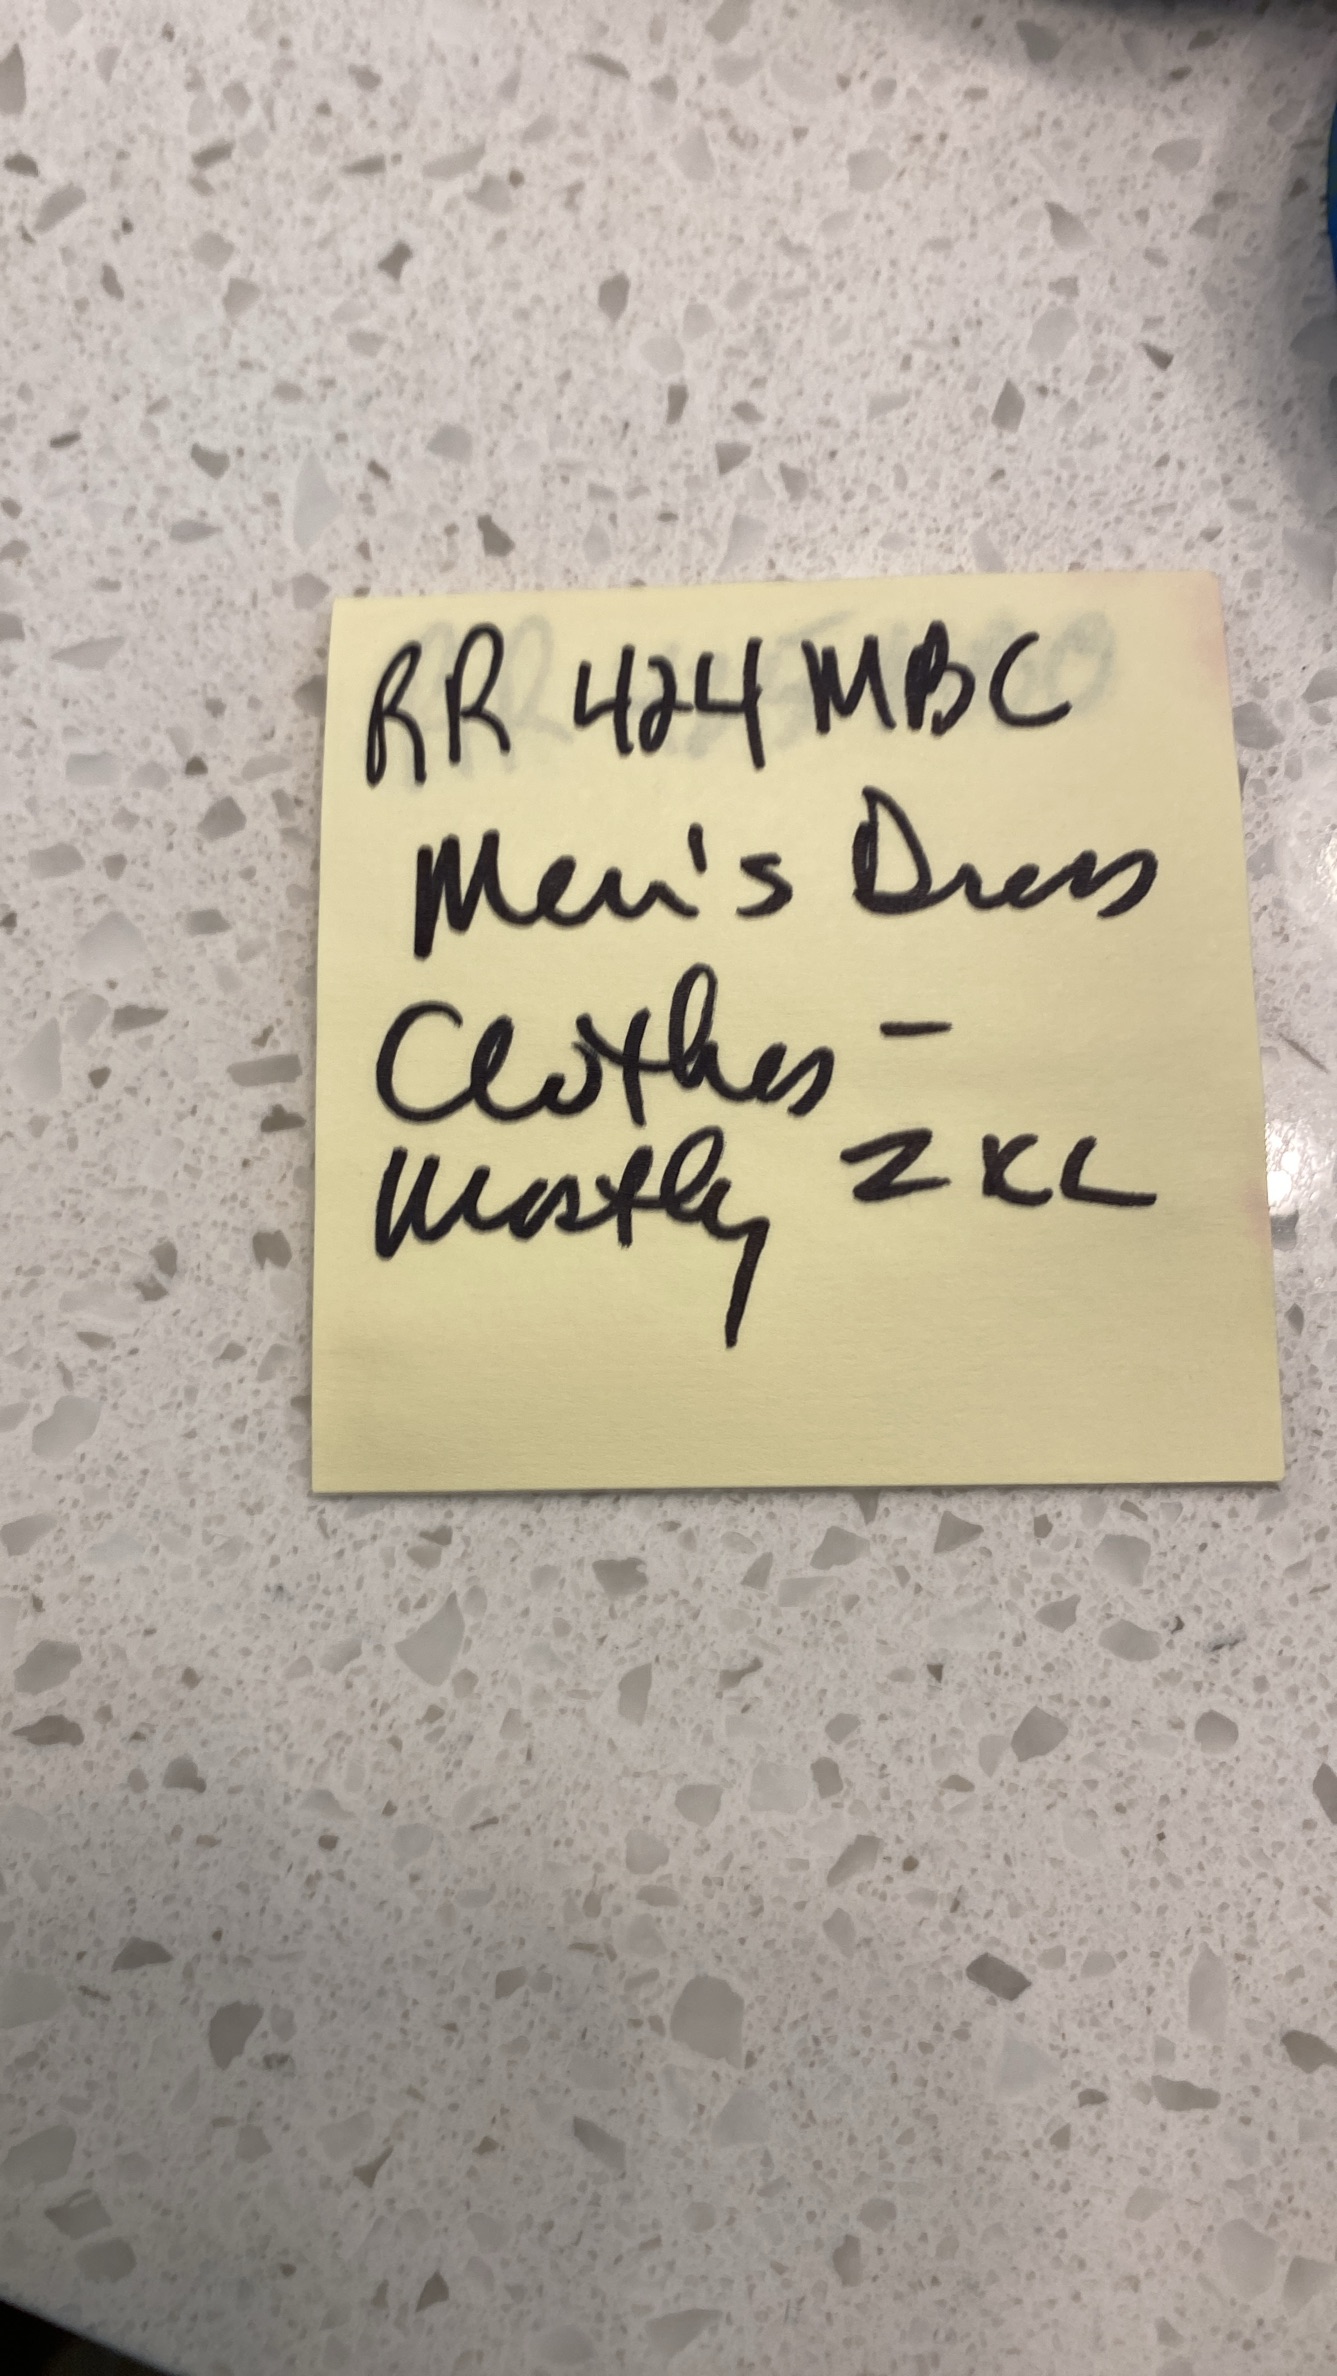 RR 424 MBC
Men's Dress
Clothes -
Mostly 2XL